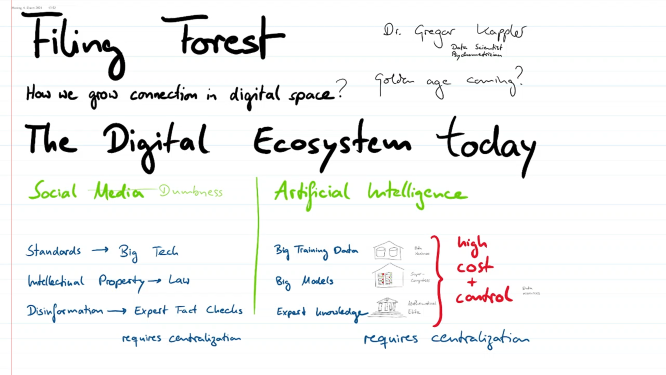 Filing Forest
Dr. Gregor Kappler
Data Scientist
Psychometrician
How we grow connection in digital space?
Golden age coming?
The Digital Ecosystem today
Social Media Dumbness
Standards → Big Tech
Intellectual Property → Law
Disinformation → Expert Fact Checks
requires centralization
Artificial Intelligence
Big Training Data
Big Models
Expert Knowledge
high
cost
+
control
requires centralization